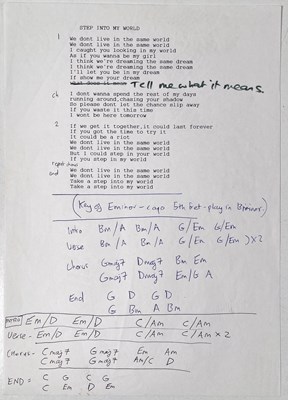 STEP INTO MY WORLD
1 We dont live in the same world
We dont live in the same world
I caught you looking in my world
As if you wanna be my girl
I think we're dreaming the same dream
I think we're dreaming the same dream
I'll let you be in my dream
If show me your dream
Tell me what it means
ch I dont wanna spend the rest of my days
running around,chasing your shadow
So please dont let the chance slip away
If you waste it this time
I wont be here tomorrow
2 If we get it together,it could last forever
If you got the time to try it
It could be a riot
We dont live in the same world
We dont live in the same world
But I could step in your world
If you step in my world
We dont live in the same world
end We dont live in the same world
Take a step into my world
Take a step into my world
(Key of Eminor - capo 5th fret - play in Bminor)
Intro Bm/A Bm/A G/Em G/Em
Verse Bm/A Bm/A G/Em G/Em) X2
Chorus Gmaj7 Dmaj7 Bm Em
Gmaj7 Dmaj7 Em/G A
End G D G D
G Bm A Bm
INTRO Em/D Em/D C/Am C/Am
VERSE - Em/D Em/D C/Am C/Am x2
CHORUS - Cmaj7 Gmaj7 Em Am
Cmaj7 Gmaj7 Am/C D
END = C G C G
C Em D Em